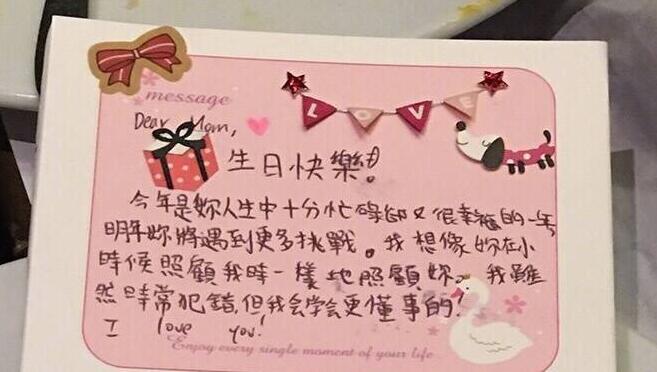 message
LOVE
Dear Mom,
生日快樂!
今年是妳人生中十分忙碌卻又很幸福的一年
明年妳將遇到更多挑戰。我想像妳在小
時候照顧我時一樣地照顧妳。我雖
然時常犯錯,但我会学会更懂事的!
I love you!
Enjoy every single moment of your life